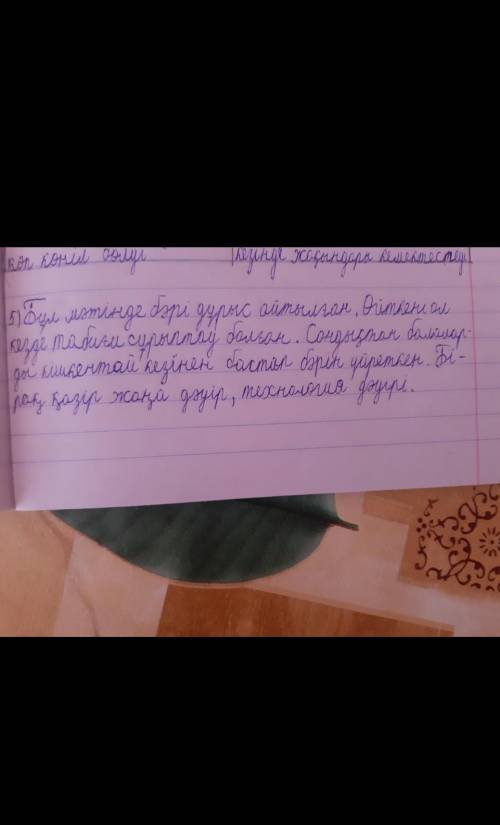 көп көңіл бөлуі
кезінде жақындары көмектеседі
5) Бұл мәтінде бәрі дұрыс айтылған. Өйткені ол
кезде табиғи сұрыптау болған. Сондықтан балалар-
ды кішкентай кезінен бастап бәрін үйреткен. Бі-
рақ қазір жаңа дәуір, технология дәуірі.